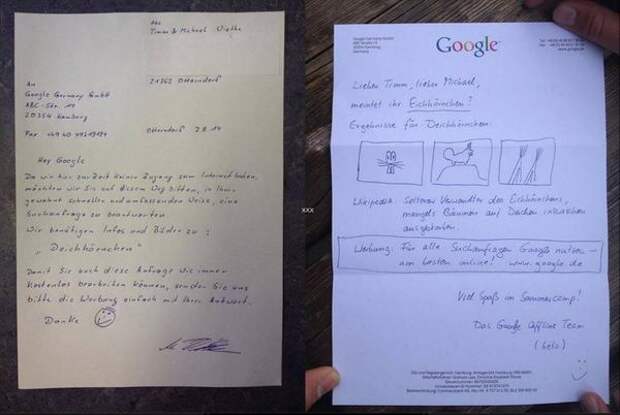 An
Google Germany GmbH
ABC-Str. 19
20354 Hamburg
21762 Otterndorf
Otterndorf 2.8.14
Hey Google
Da wir hier zur Zeit keinen Zugang zum Internet haben,
möchten wir Sie auf diesem Weg bitten, in Ihrer
gewohnt schnellen und umfassenden Weise, eine
Suchanfrage zu beantworten
Wir benötigen Infos und Bilder zu:
„Deichhörnchen"
Damit Sie auch diese Anfrage wie immer
kostenlos bearbeiten können, senden Sie uns
bitte die Werbung einfach mit Ihrer Antwort.
Danke
xxx
Google
Lieber Timm, lieber Michael,
meintet ihr Eichhörnchen?
Ergebnisse für Deichhörnchen:
Wikipedia: Seltener Verwandter des Eichhörnchens,
mangels Bäumen auf Deichen inzwischen
ausgestorben.
Werbung: Für alle Suchanfragen Google nutzen –
am besten online! www.google.de
Viel Spaß im Sommercamp!
Das Google Offline Team